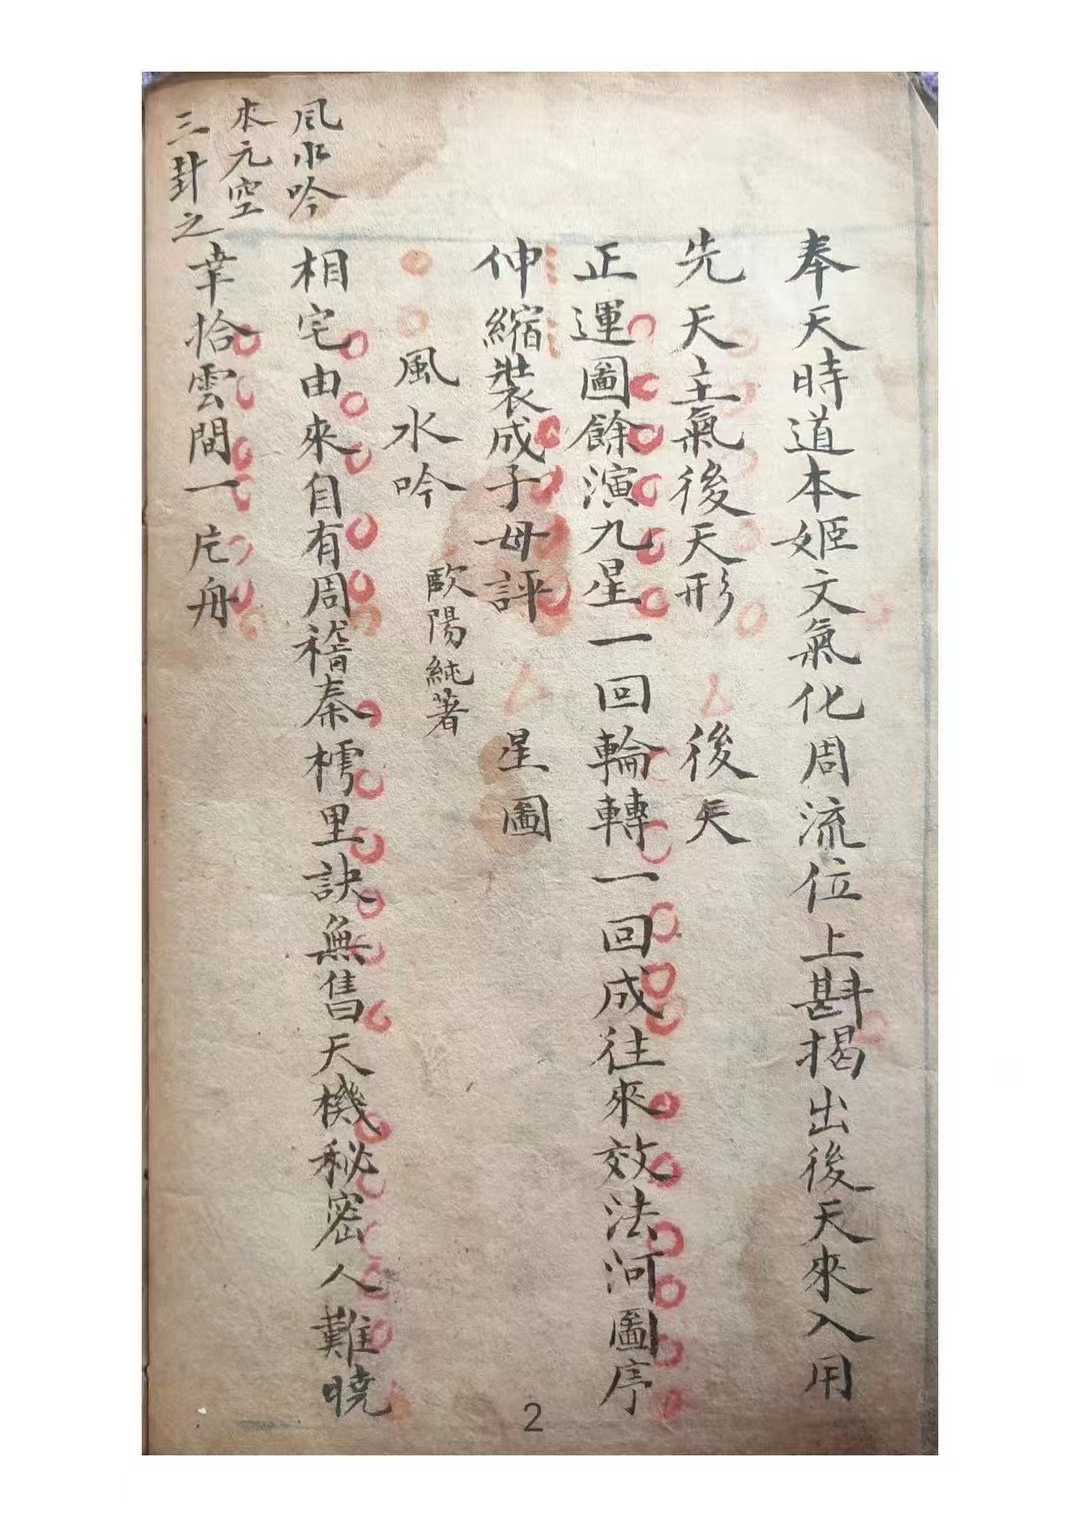 奉天時道本姬文氣化周流位上斟揭出後天來入用
先天主氣後天形 後天
正運圖餘演九星一回輪轉一回成往來效法河圖序
伸縮裝成子母評 星圖
風水吟 歐陽純著
風水吟
相宅由來自有周稽秦樗里訣無售天機秘密人難曉
本元空
三卦之
幸拾雲間一片舟
2